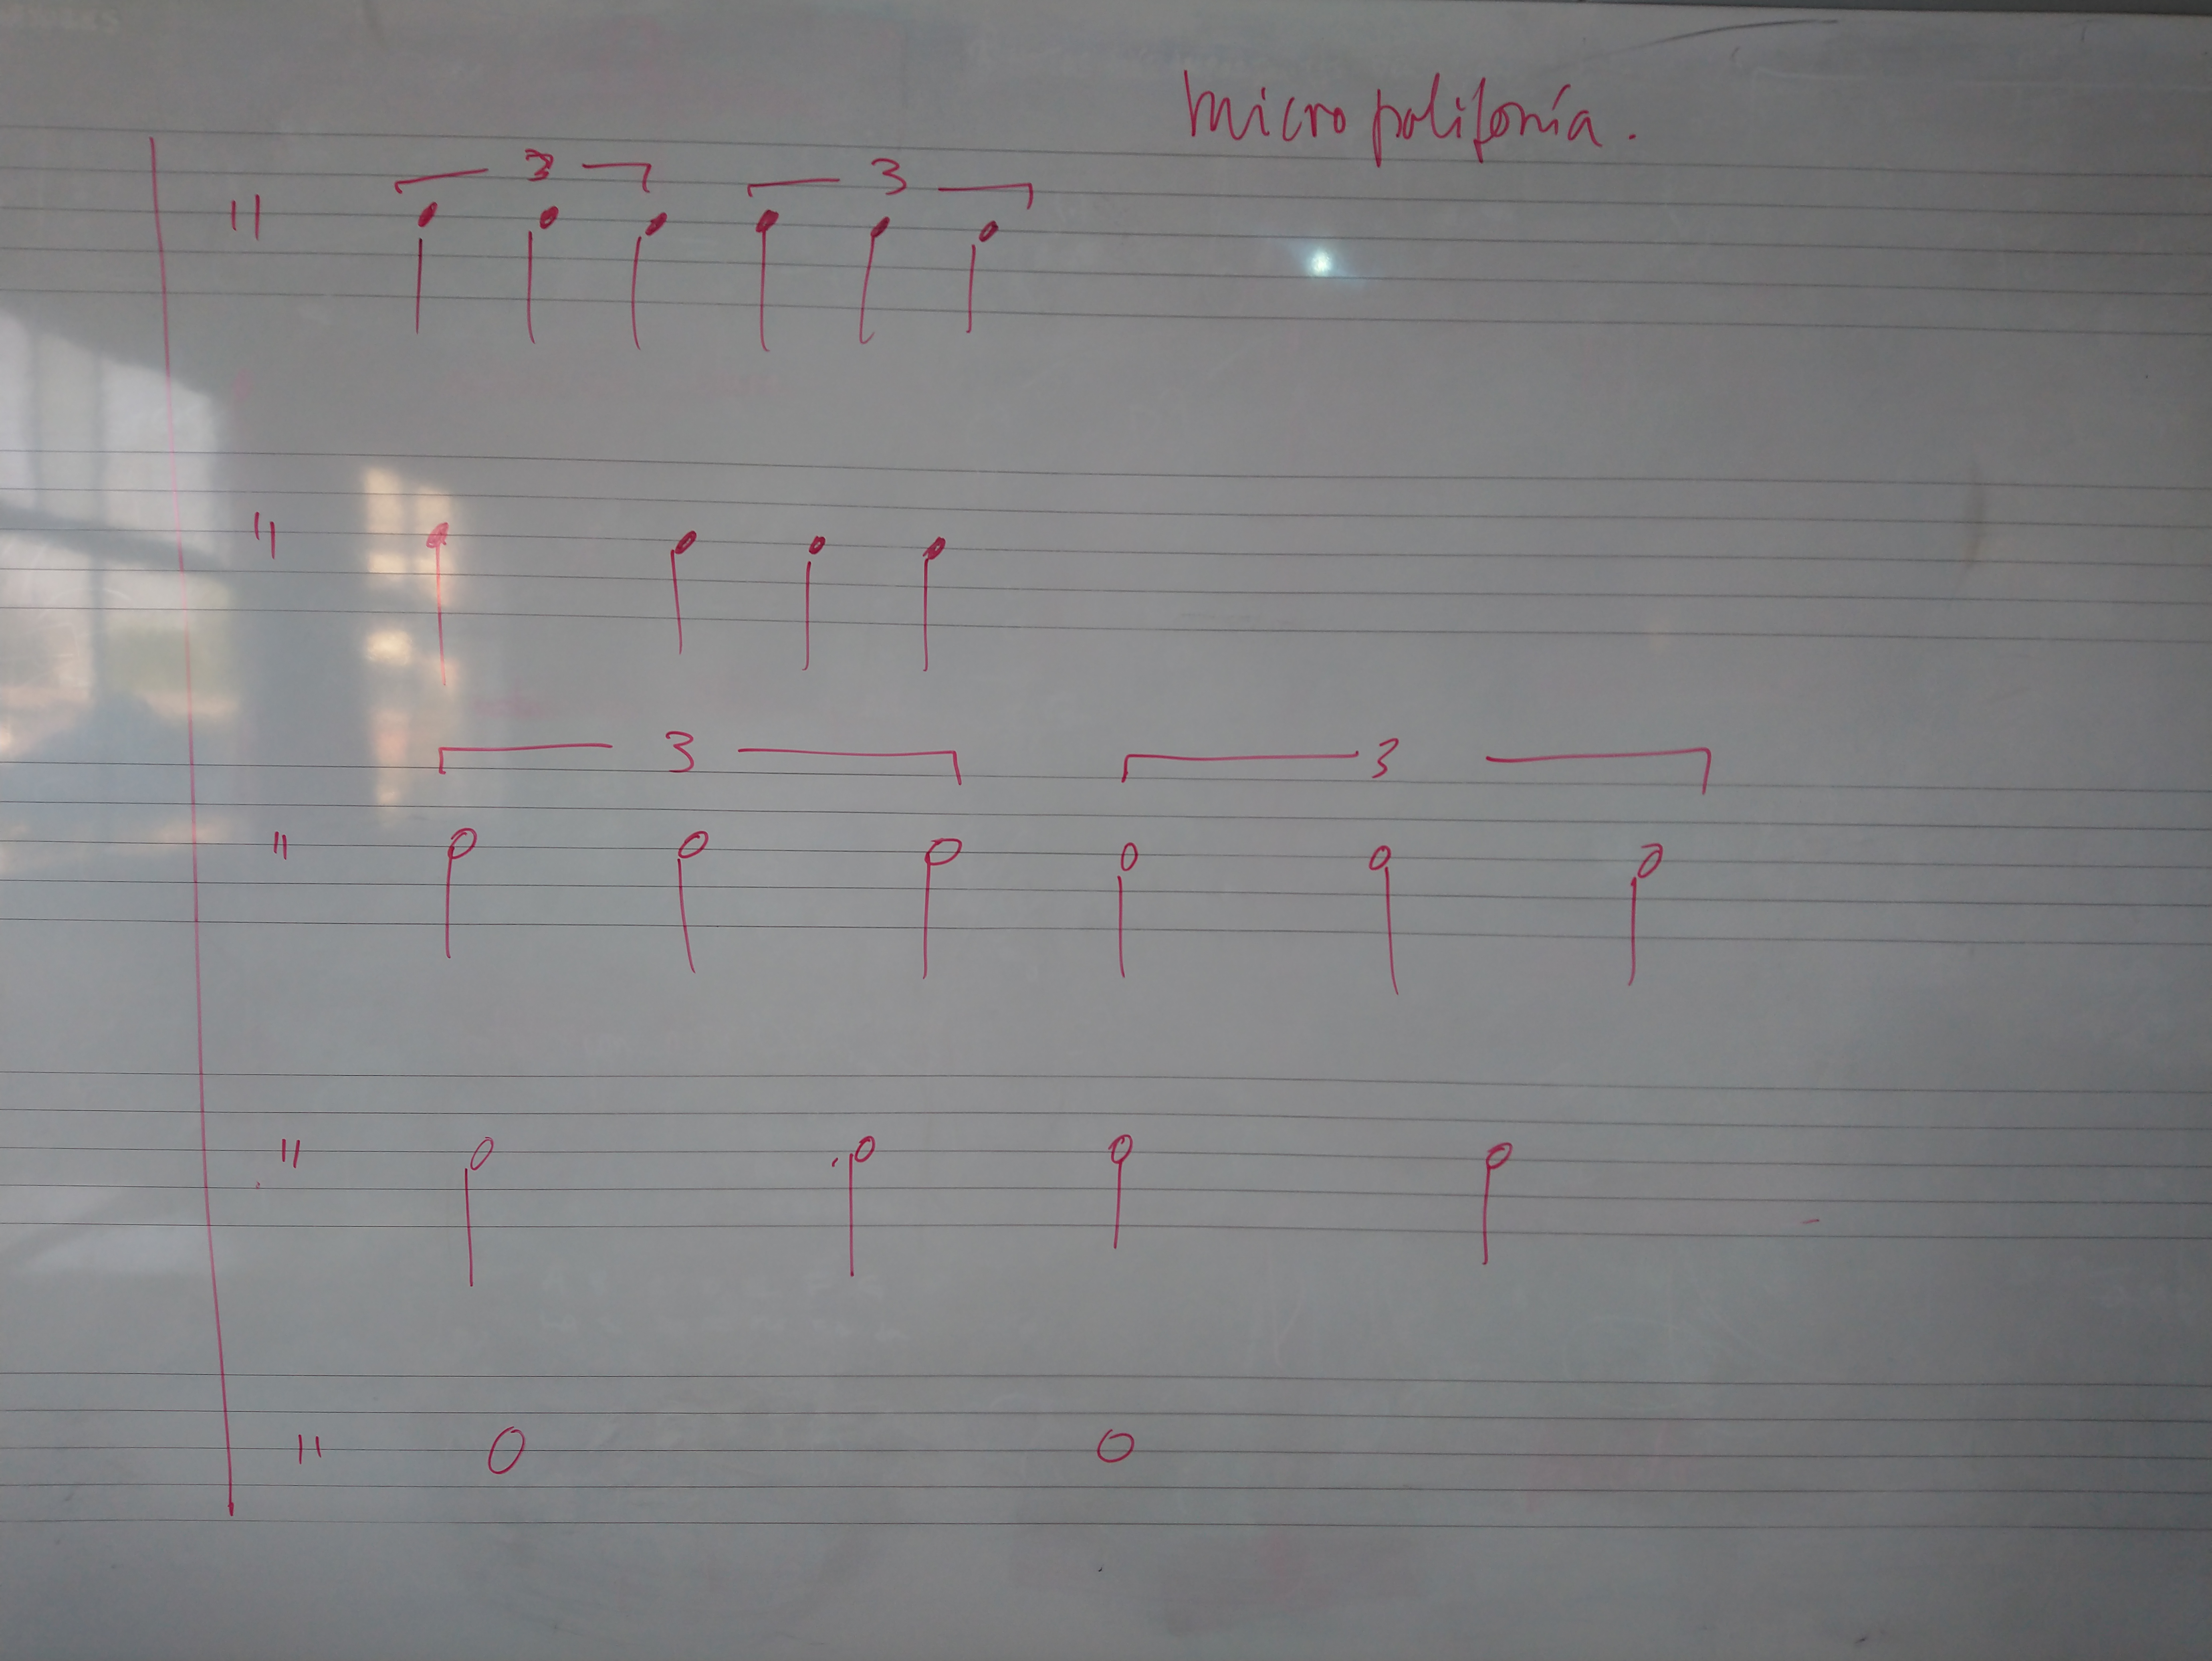 micropolifonía.
3 3
3 3